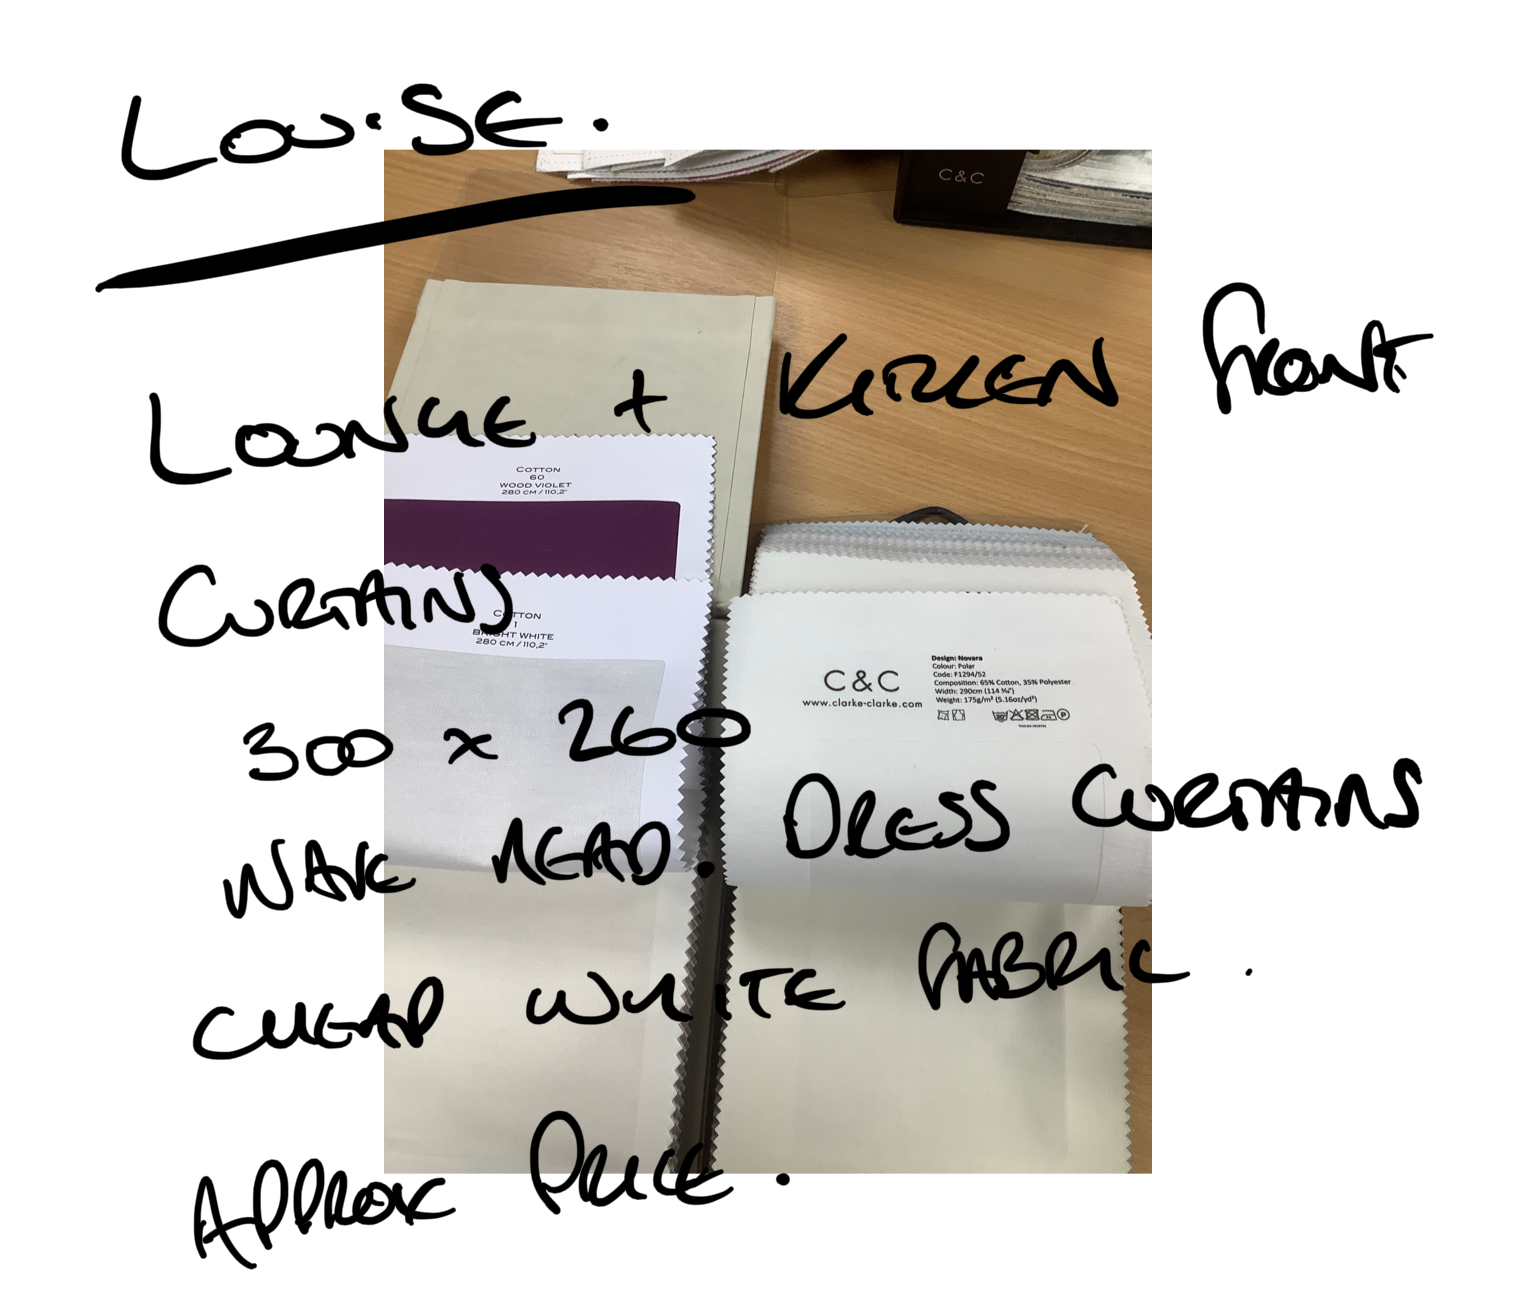 LOUISE.
C&C
LOUNGE + KITCHEN FRONT
COTTON
60
WOOD VIOLET
280 CM / 110,2"
CURTAINS
COTTON
1
BRIGHT WHITE
280 CM / 110,2"
C&C
www.clarke-clarke.com
Design: Novara
Colour: Polar
Code: F1294/52
Composition: 65% Cotton, 35% Polyester
Width: 290cm (114 ¾")
Weight: 175g/m² (5.16oz/yd²)
300 x 260
WAVE HEAD. DRESS CURTAINS
CHEAP WHITE FABRIC.
APPROX PRICE.